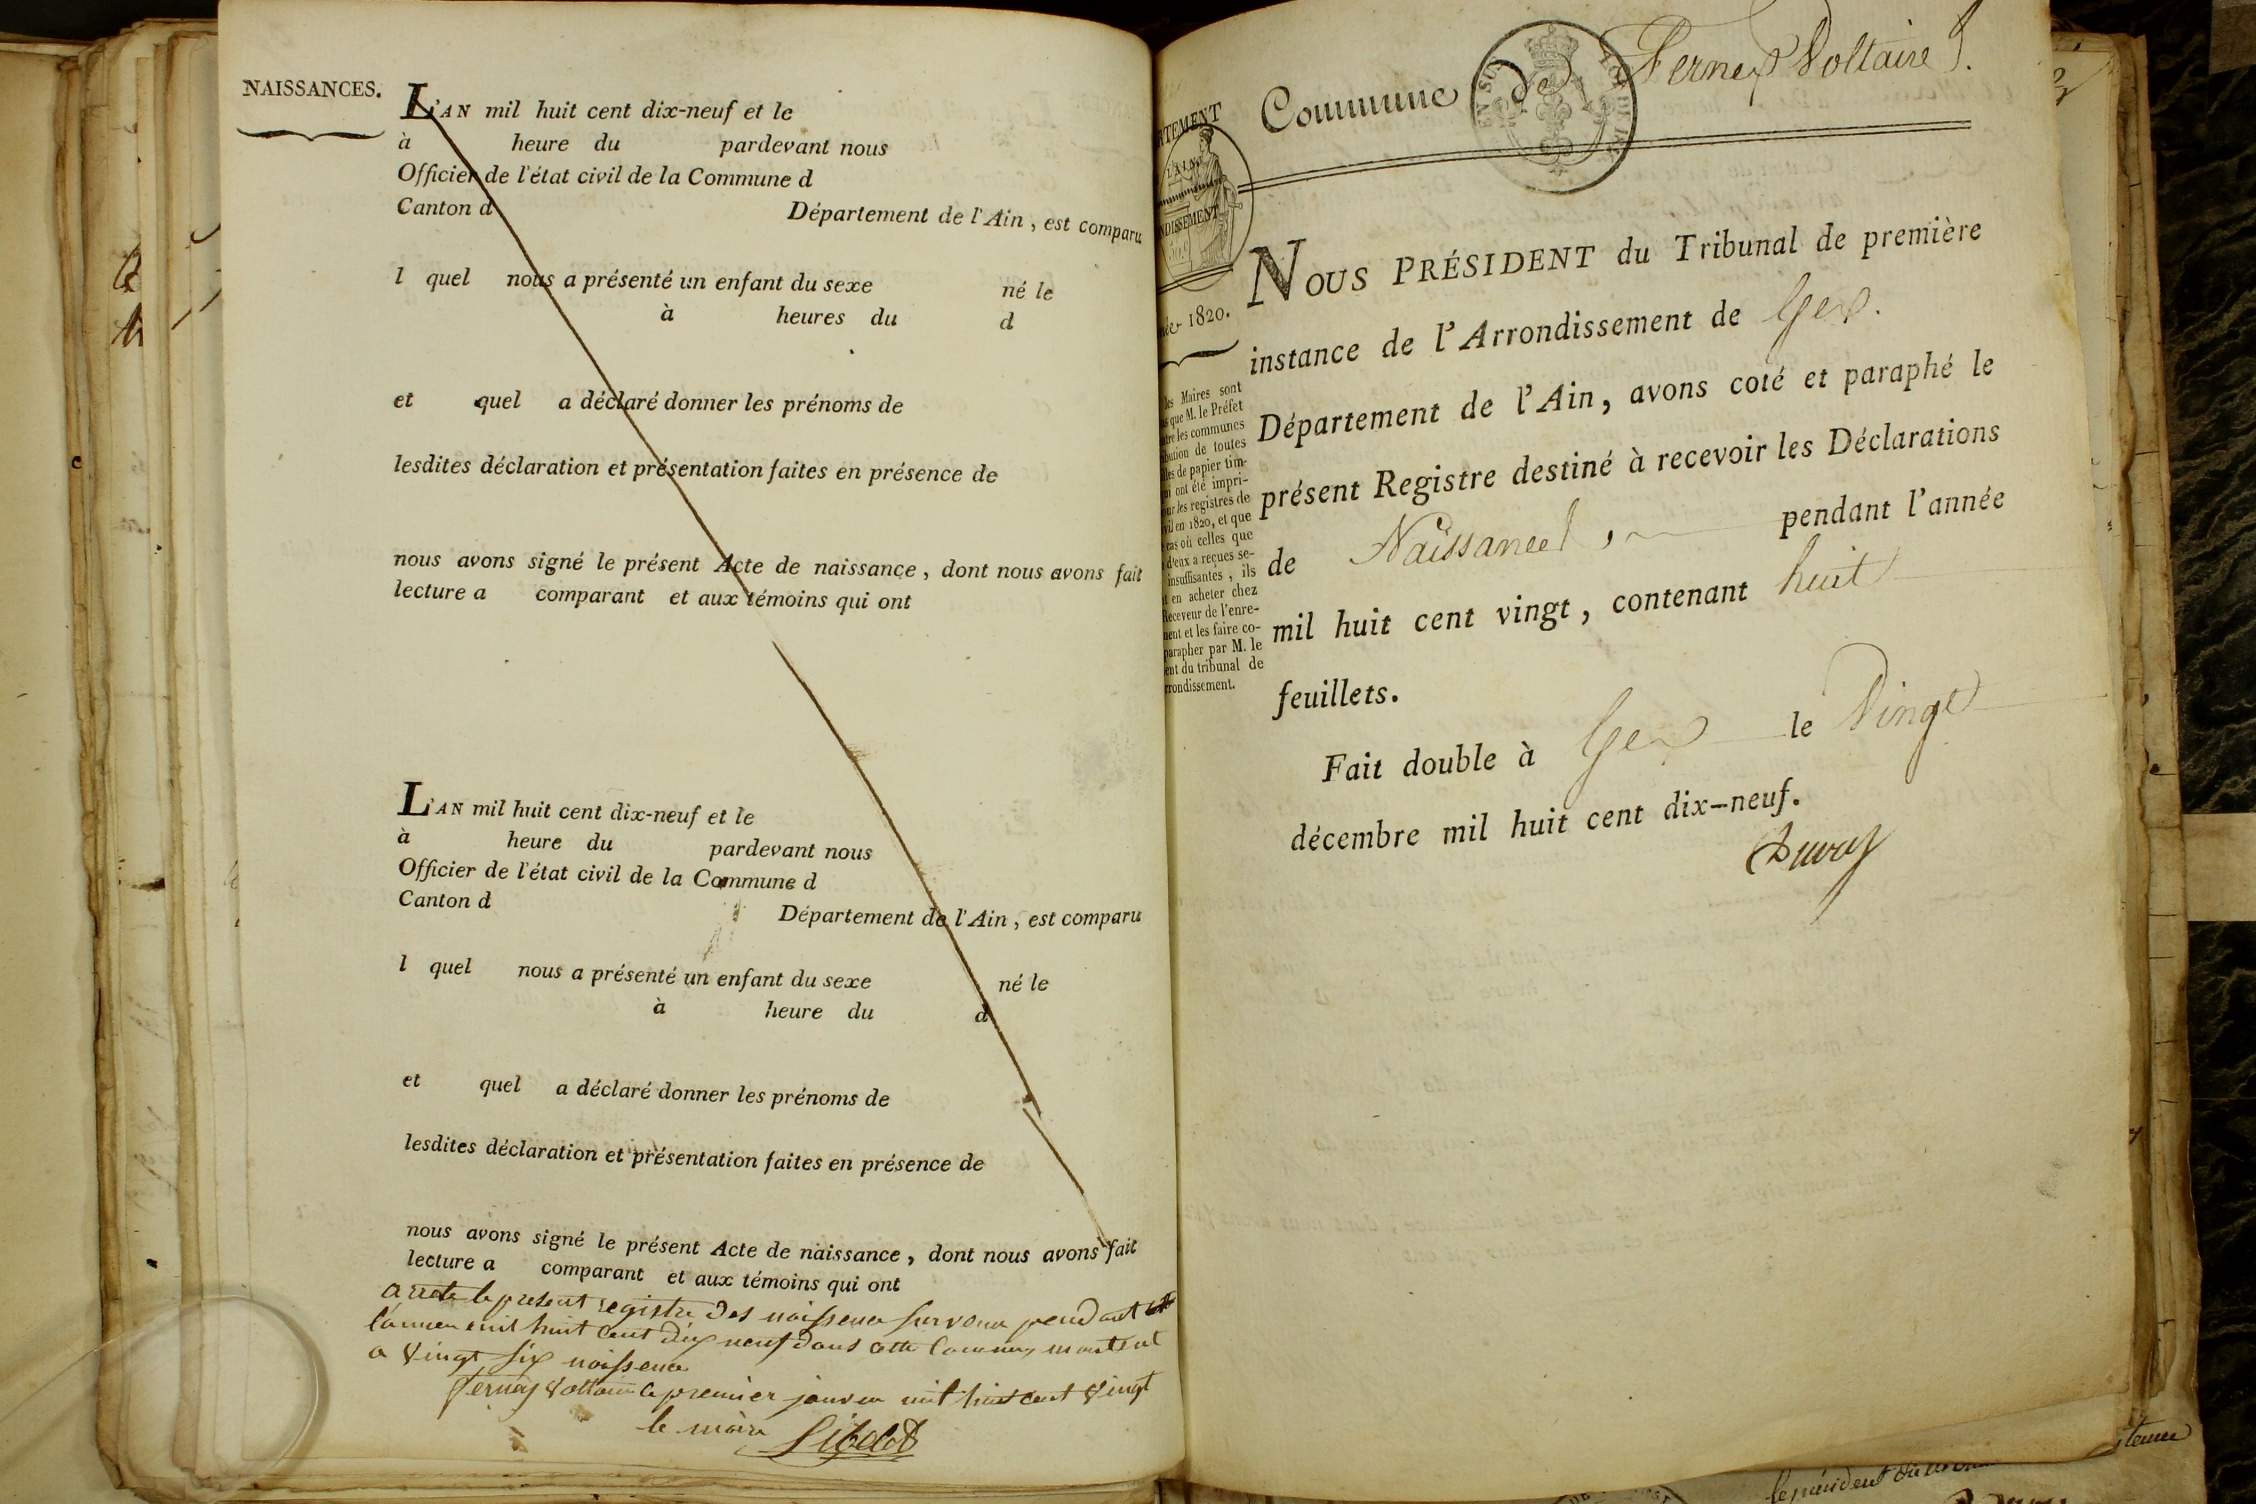 NAISSANCES.
L'AN mil huit cent dix-neuf et le
à heure du pardevant nous
Officier de l'état civil de la Commune d
Canton d Département de l'Ain, est comparu
l quel nous a présenté un enfant du sexe né le
à heures du d
et quel a déclaré donner les prénoms de
lesdites déclaration et présentation faites en présence de
nous avons signé le présent Acte de naissance, dont nous avons fait
lecture a comparant et aux témoins qui ont
L'AN mil huit cent dix-neuf et le
à heure du pardevant nous
Officier de l'état civil de la Commune d
Canton d Département de l'Ain, est comparu
l quel nous a présenté un enfant du sexe né le
à heure du d
et quel a déclaré donner les prénoms de
lesdites déclaration et présentation faites en présence de
nous avons signé le présent Acte de naissance, dont nous avons fait
lecture a comparant et aux témoins qui ont
arrete le present registre des naissence survenu pendant
l'annee mil huit cent dix neuf dans cette Commune montent
a vingt six naissence
Fernay Voltaire le premier janvier mil huit cent vingt
le maire
Commune de Ferney Voltaire
RTEMENT
L'AIN
NDISSEMENT
1820.
les Maires sont
que M. le Préfet
tre les communes
bution de toutes
les de papier tim-
ui ont été impri-
ur les registres de
vil en 1820, et que
cas où celles que
d'eux a reçues se-
insuffisantes, ils
t en acheter chez
Receveur de l'enre-
ment et les faire co-
parapher par M. le
ent du tribunal de
rrondissement.
NOUS PRÉSIDENT du Tribunal de première
instance de l'Arrondissement de Gex.
Département de l'Ain, avons coté et paraphé le
présent Registre destiné à recevoir les Déclarations
de Naissance, pendant l'année
mil huit cent vingt, contenant huit
feuillets.
Fait double à Gex le Vingt
décembre mil huit cent dix-neuf.
le président du